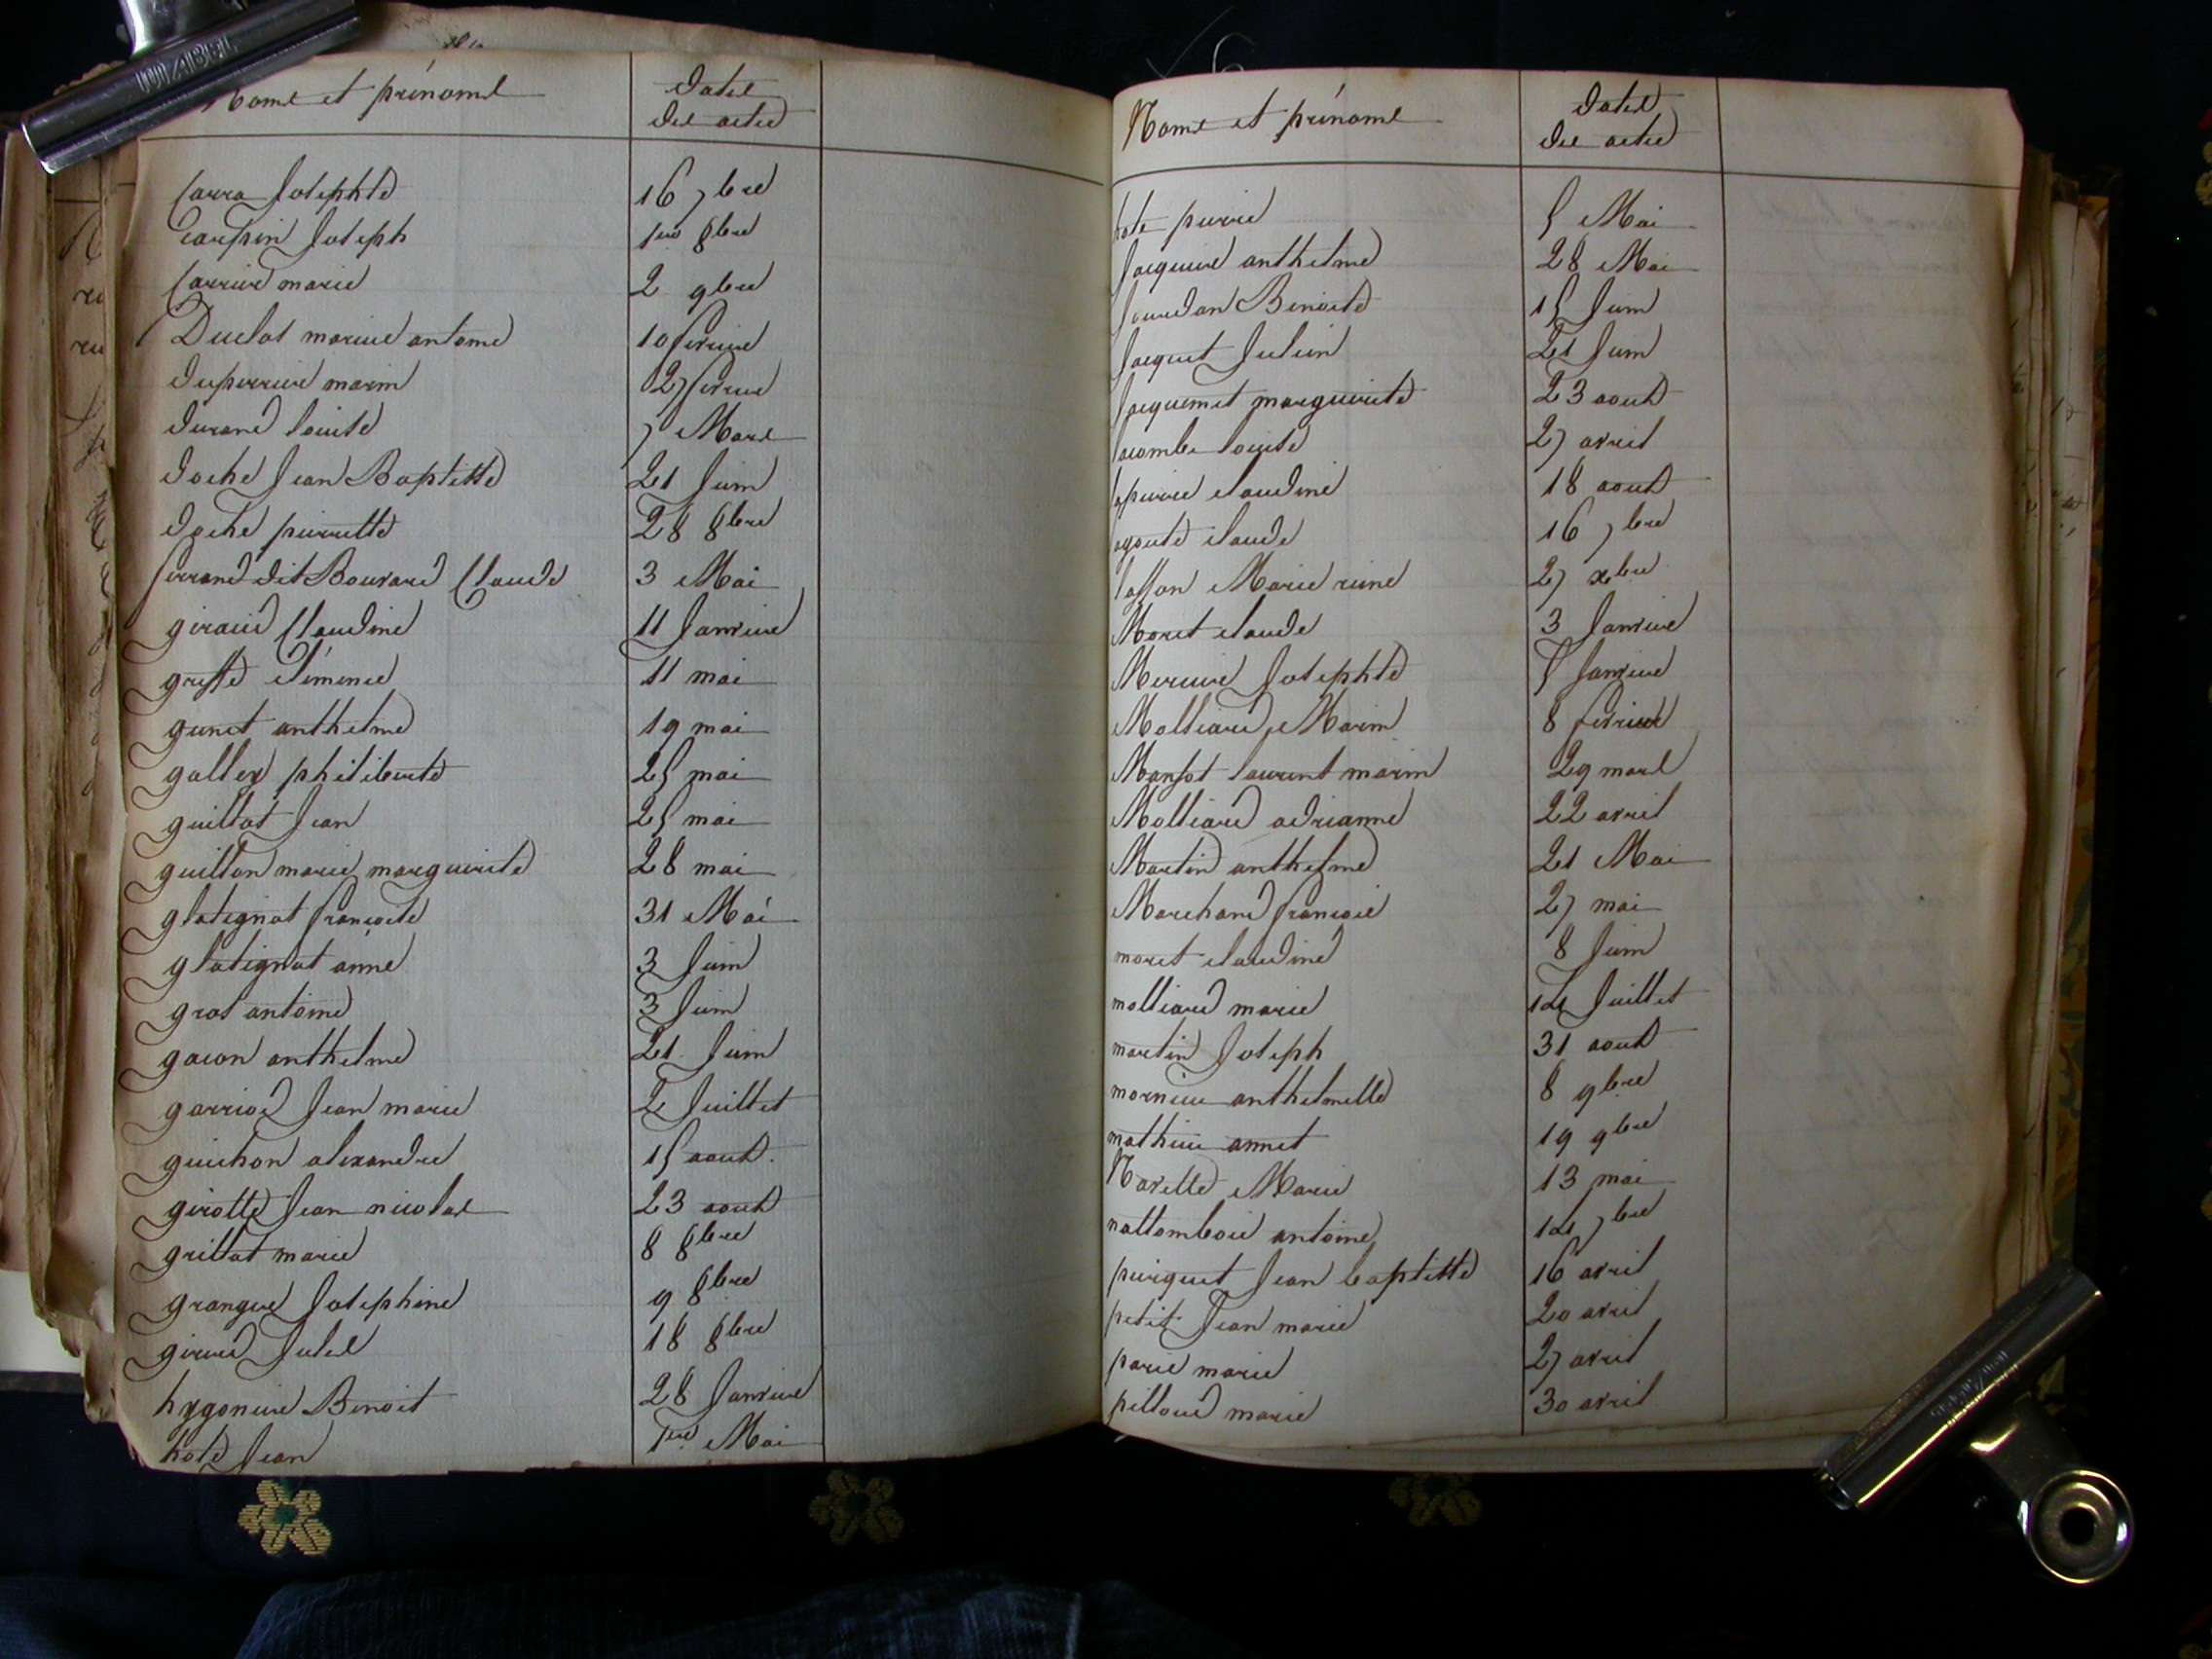 Noms et prénoms
Dates
des actes
Carra Josephte 16 7bre
Carpin Joseph 1er 8bre
Carrier marie 2 9bre
Duclos marie antoine 10 fevrier
Duperrier marin 27 fevrier
Durand louise 7 Mars
Doche Jean Baptiste 21 Juin
Doche pierrette 28 8bre
ferrand dit Bouvard Claude 3 Mai
giraud Claudine 11 Janvier
griffe Clémence 11 mai
gunet anthelme 19 mai
galley philiberte 25 mai
guillot Jean 25 mai
guillon marie marguerite 28 mai
glatignat françoise 31 Mai
glatignat anne 3 Juin
gros antoine 3 Juin
gacon anthelme 21 Juin
garriod Jean marie 2 Juillet
guichon alexandre 15 aout
girotte Jean nicolas 23 aout
grillat marie 8 8bre
granger Josephine 9 8bre
girard Jules 18 8bre
hygonier Benoit 28 Janvier
hote Jean 1er Mai
Noms et prénoms
Dates
des actes
hote pierre 5 Mai
Jacquier anthelme 28 Mai
Jourdan Benoite 15 Juin
Jacquet Julien 21 Juin
Jacquemet marguerite 23 aout
lacombe louise 27 avril
lapierre claudine 18 aout
claude 16 7bre
lasson Marie reine 27 xbre
Moret claude 3 Janvier
Mercier Josephte 5 Janvier
Molliard Marin 8 fevrier
Mansot laurent marin 29 mars
Molliard adrianne 22 avril
Martin anthelme 21 Mai
Marchand françois 27 mai
moret claudine 8 Juin
molliard marie 12 Juillet
martin Joseph 31 aout
mornieu anthelmette 8 9bre
mathieu annet 19 9bre
Navette Marie 13 mai
nallombois antoine 12 7bre
peisquet Jean baptiste 16 avril
petit Jean marie 20 avril
paris marie 27 avril
pilloud marie 30 avril